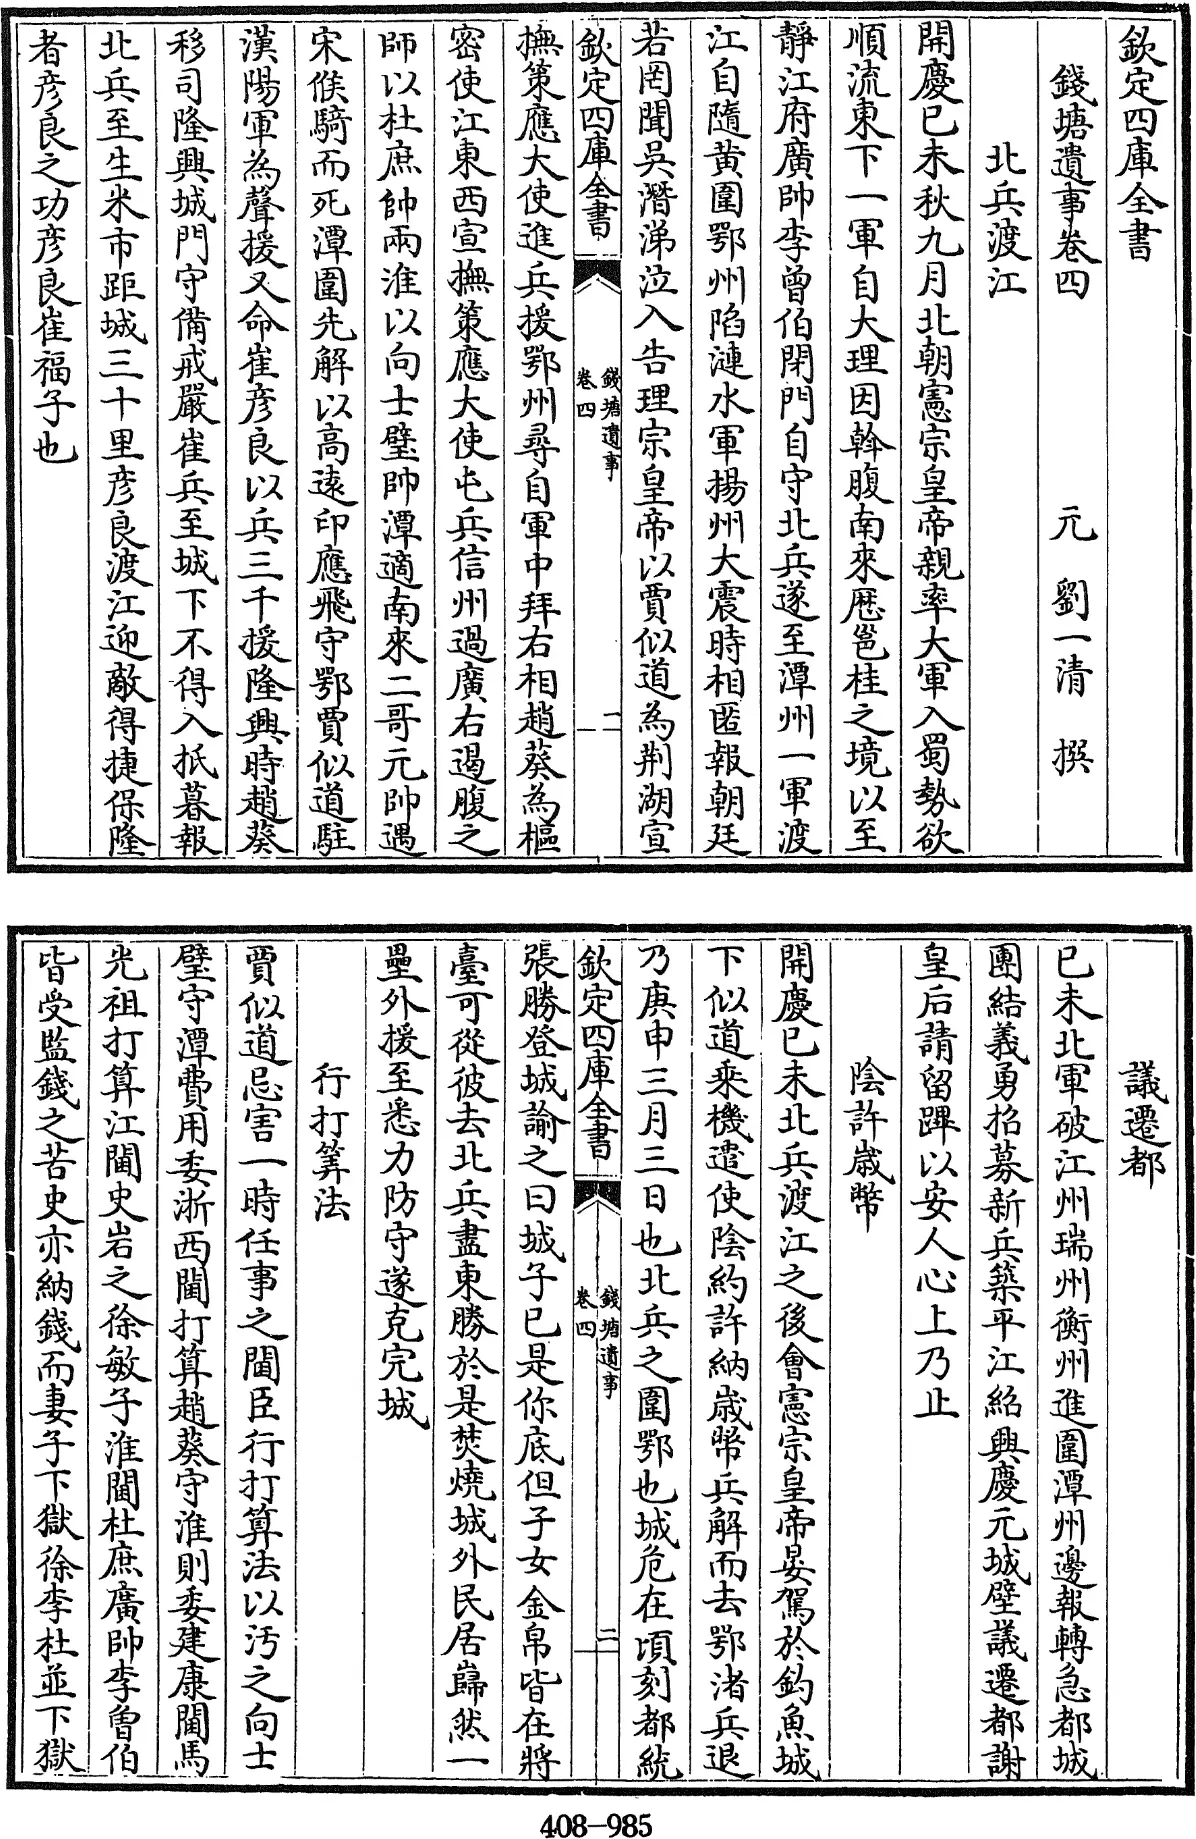 欽定四庫全書
錢塘遺事卷四
元 劉一清 撰
北兵渡江
開慶已未秋九月北朝憲宗皇帝親率大軍入蜀勢欲
順流東下一軍自大理因斡腹南來歴邕桂之境以至
靜江府廣帥李曾伯閉門自守北兵遂至潭州一軍渡
江自隨黄圍鄂州陷漣水軍揚州大震時相匿報朝廷
若罔聞吳潛涕泣入告理宗皇帝以賈似道為荆湖宣
欽定四庫全書
錢塘遺事
卷四
一
撫策應大使進兵援鄂州尋自軍中拜右相趙葵為樞
密使江東西宣撫策應大使屯兵信州遏廣右遏腹之
師以杜庶帥兩淮以向士璧帥潭適南來二哥元帥遇
宋候騎而死潭圍先解以高逵印應飛守鄂賈似道駐
漢陽軍為聲援又命崔彦良以兵三千援隆興時趙葵
移司隆興城門守備戒嚴崔兵至城下不得入抵暮報
北兵至生米市距城三十里彦良渡江迎敵得捷保隆
者彦良之功彦良崔福子也
議遷都
已未北軍破江州瑞州衡州進圍潭州邊報轉急都城
團結義勇招募新兵築平江紹興慶元城壁議遷都謝
皇后請留蹕以安人心上乃止
陰許歳幣
開慶已未北兵渡江之後會憲宗皇帝晏駕於釣魚城
下似道乘機遣使陰約許納歳幣兵解而去鄂渚兵退
乃庚申三月三日也北兵之圍鄂也城危在頃刻都統
欽定四庫全書
錢塘遺事
卷四
二
張勝登城諭之曰城子已是你底但子女金帛皆在將
臺可從彼去北兵盡東勝於是焚燒城外民居巋然一
壘外援至悉力防守遂克完城
行打筭法
賈似道忌害一時任事之閫臣行打算法以汚之向士
璧守潭費用委浙西閫打算趙葵守淮則委建康閫馬
光祖打算江閫史岩之徐敏子淮閫杜庶廣帥李曾伯
皆受監錢之苦史亦納錢而妻子下獄徐李杜並下獄
408-985